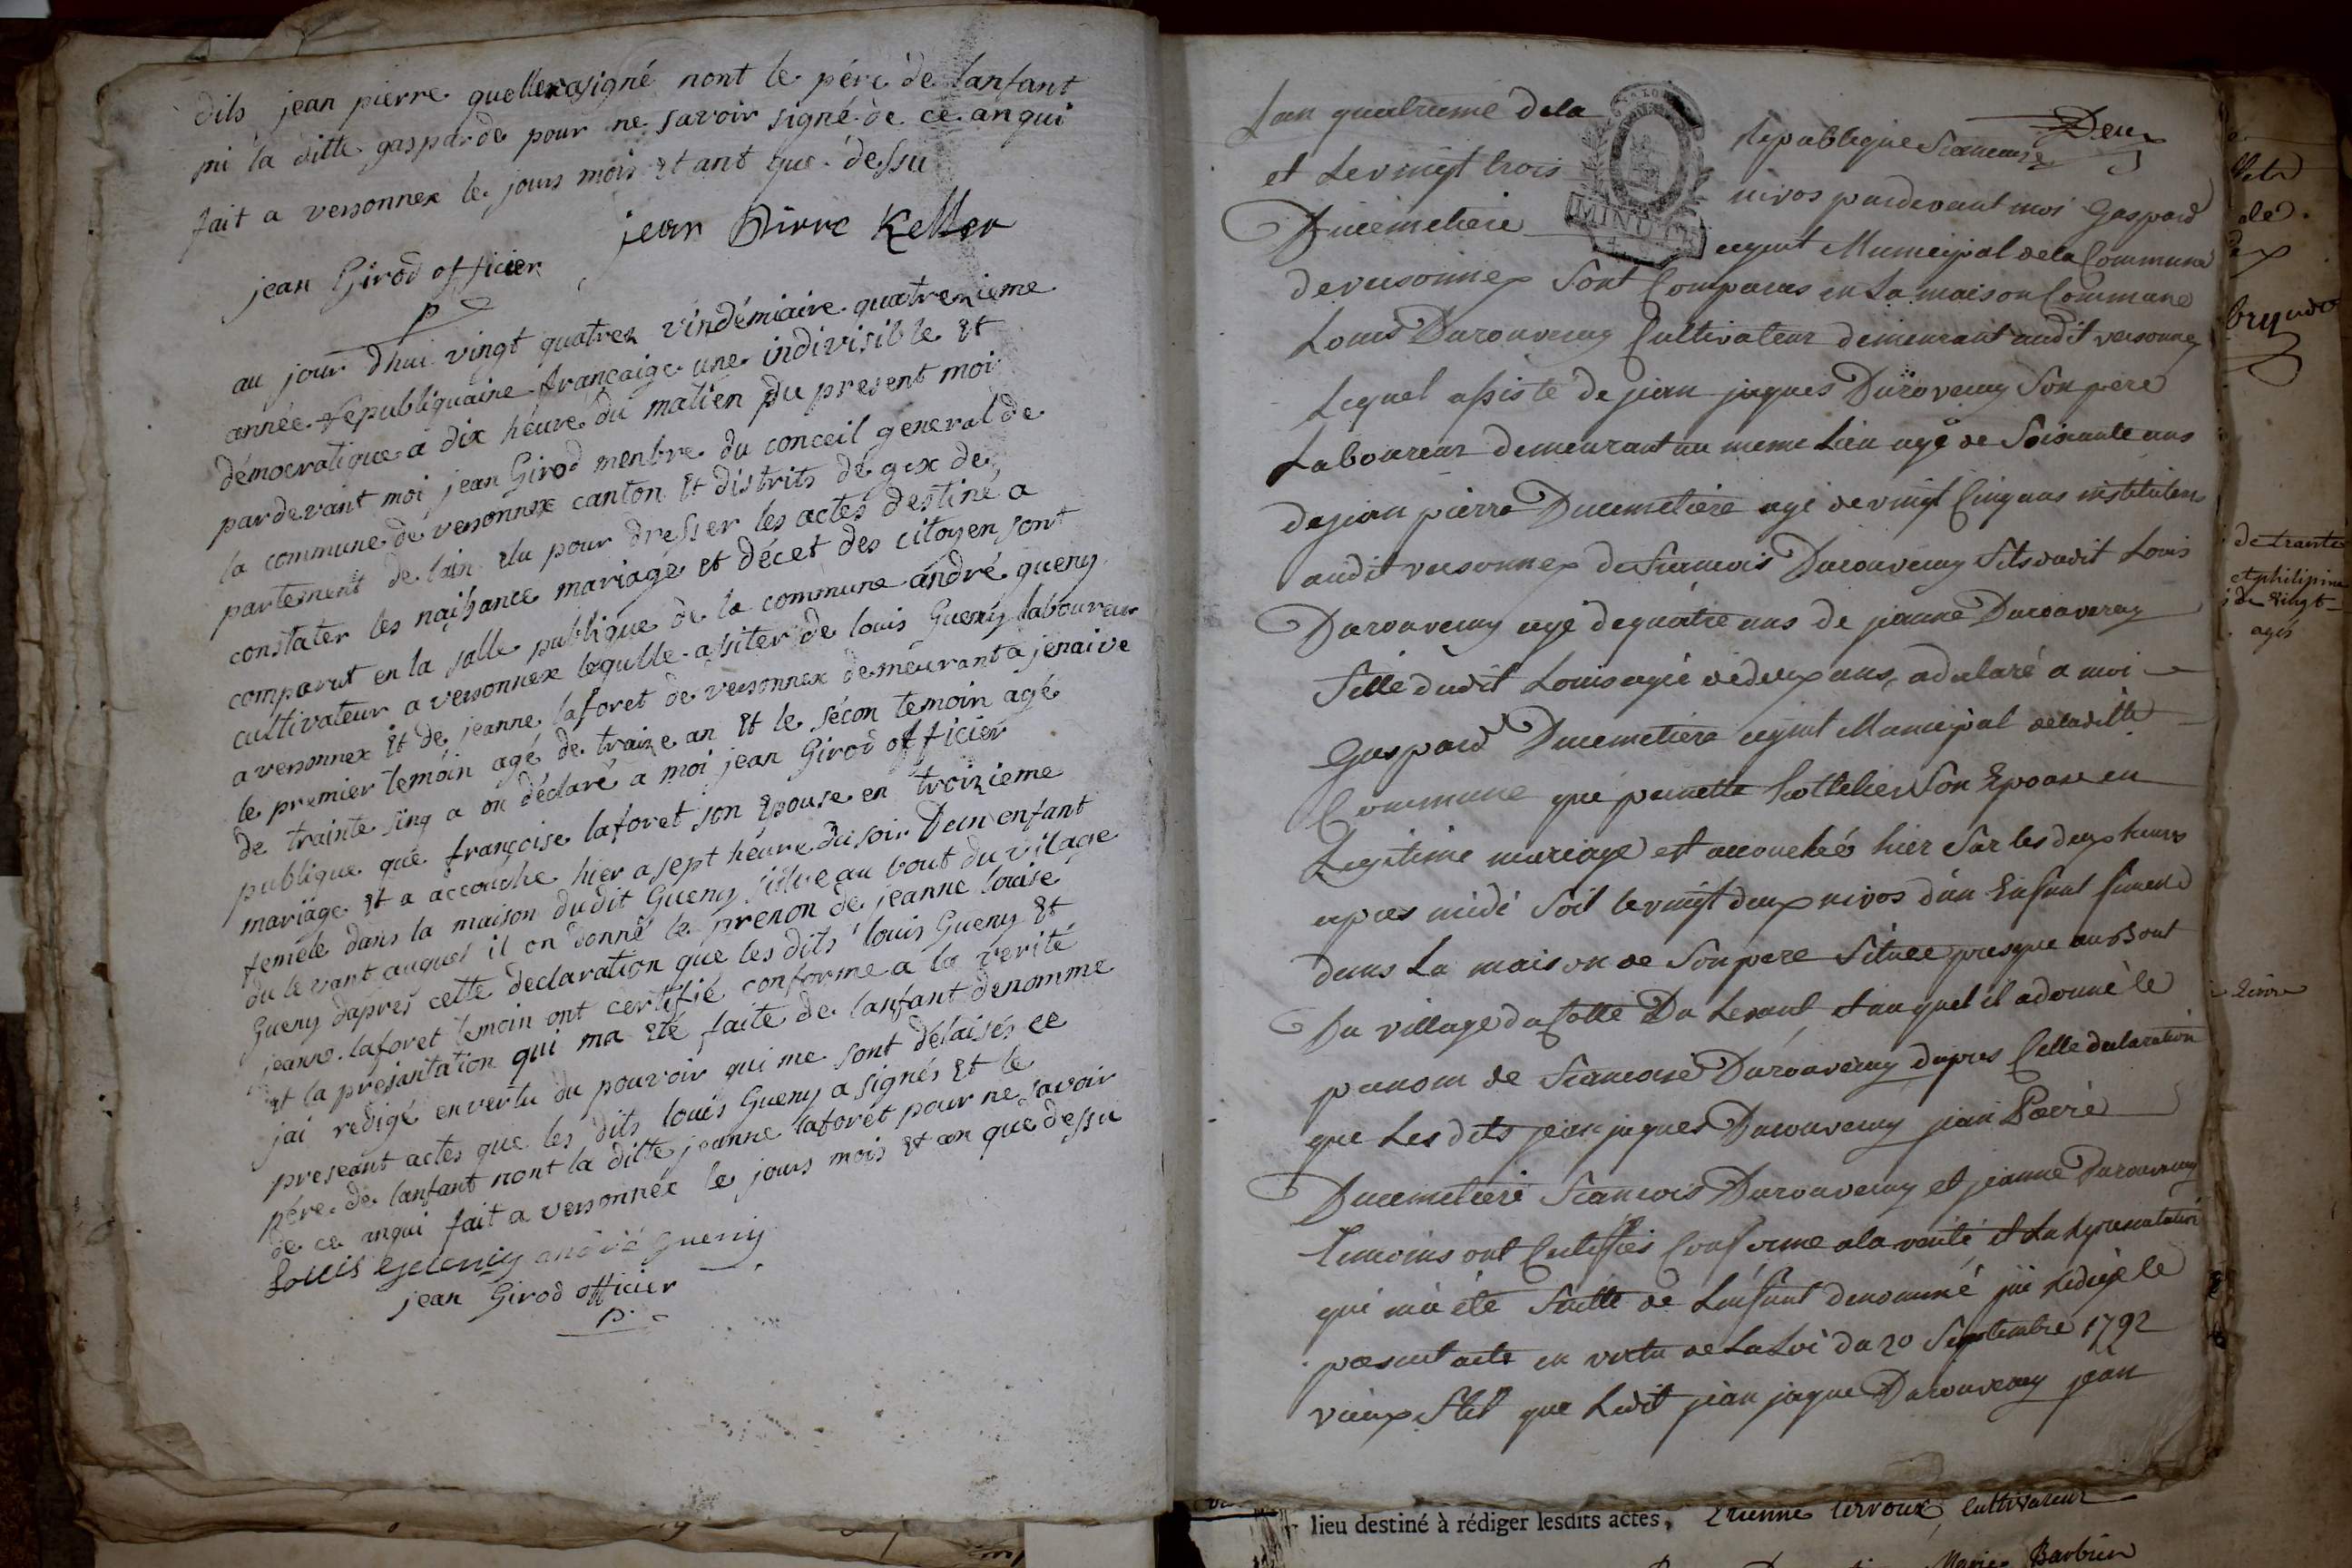 dits jean pierre queller a signé nont le pére de lanfant
ni la ditte gasparde pour ne savoir signé de ce anqui
fait a versonnex le jours mois et ant que dessu
jean Pierre Keller
jean Girod officier
p
au jour d'hui vingt quatrez vindémiaire quatrezieme
année républiquaine françaige une indivisible et
démocratique a dix héure du matien du present moi
pardevant moi jean Girod menbre du conceil general de
la commune de versonnex canton et distrits de gex de
partement de lain elu pour dresser les actes destiné a
constater les naissance mariage et décet des citoyen sont
comparut en la salle publique de la commune andré gueny
cultivateur a versonnex lequelle asiter de louis Gueny laboureur
a versonnex et de jeanne laforet de versonnex demeurant a
le premier temoin agé de traize an et le sécon temoin agé
de trainte sinq a on déclaré a moi jean Girod officier
publique que françoise laforet son épouse en troizieme
mariage et a accouche hier a sept héure du soir Dun enfant
femele dans la maison dudit Gueny situe au bout du vilage
du levant auquel il on donné le prenon de jeanne louise
Gueny dapres cette declaration que les dits louis Gueny et
jeanne laforet temoin ont certifié conforme a la verité
et la présantation qui ma été faite de lanfant denomme
jai redigé en vertu du pouvoir qui me sont délaisés ce
preseant actes que les dits louis Gueny a signés et le
pére de lanfant nont la ditte jeanne laforet pour ne savoir
de ce anqui fait a versonnex le jours mois et an que dessu
Louis gueniy andré gueny
jean Girod officier
p.
Deux
Lan quatrieme dela Republique francaise
et Le vingt trois nivos pardevant moi Gaspard
Ducimetiere agent Municipal dela Commune
MINUTE
de versonnex Sont Comparus en La maison Commune
Louis Durouveney Cultivateur demeurant audit versonnex
Lequel assisté de jean jaques Durouveney Son pere
Laboureur demeurant au meme Lieu agé de Soixante ans
de jean pierre Ducimetiere agé de vingt Cinq ans instituteur
audit versonnex de francois Durouveney fils dudit Louis
Durouveney agé de quatre ans de jeanne Durouveney
fille dudit Louis agée de deux ans, a declaré a moi
Gaspard Ducimetiere agent Municipal de ladite
Commune que pernette Son Epouse en
Legitime mariage est accouchée hier Sur les deux heures
apres midi Soit le vingt deux nivos d'un Enfant femelle
dans La maison de Son pere Située presque au Bout
Du village du Cotté Du Levant, et auquel il a donné le
prenom de francoise Durouveney dapres Cette declaration
que Les dits jean jaques Durouveney jean Pierre
Ducimetiere francois Durouveney et jeanne Durouveney
temoins ont Certiffiés Conforme a la verité et La representation
qui m'a été faitte de L'enfant denommé jai redigé le
present acte en vertu de La Loi du 20 Septembre 1792
vieux Stil que Ledit jean jaque Durouveney jean
de trante
et philipine
de vingt
agés
lieu destiné à rédiger lesdits actes, Etienne Cultivateur
Marie Barbier